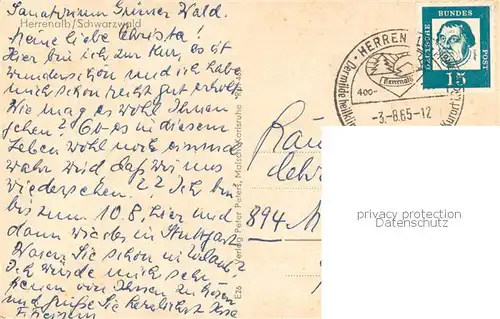 Sanatorium Grüner Wald.
Herrenalb/Schwarzwald
Meine liebe Christa!
Hier bin ich zur Kur, es ist
wunderschön und ich habe
mich schon recht gut erholt
Wie mag es wohl Ihnen
gehen? Ob es in diesem
Leben wohl noch einmal
wahr wird daß wir uns
wiedersehen?? Ich bin
bis zum 10.8. hier und
dann wieder in Stuttgart
Waren Sie schon in Urlaub?
Ich würde mich sehr
freuen von Ihnen zu hören
und grüße Sie herzlichst Ihre
Verlag Peter Peters, Malsch/Karlsruhe
E26
HERREN
Herrenalb
400-
-3.-8.65-12
DEUTSCHE
BUNDES
POST
15
894 M
privacy protection
Datenschutz